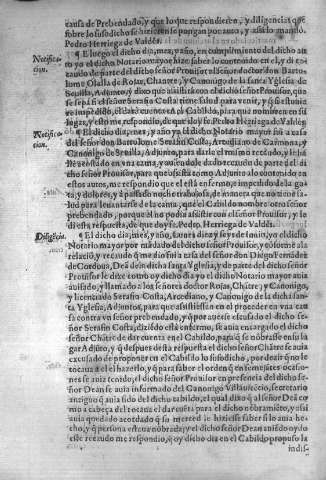 causa de Prebendado, y que lo que respondieren, y diligencias que
sobre lo susodicho se hizieren se pongan por auto, y assi lo mandò.
Pedro Herriega de Valdes.
Notificacion.
¶ E luego el dicho dia, mes, y año, en cumplimiento del dicho auto yo el dicho Notario mayor hize saber lo contenido en el, y di
recaudo de parte del dicho señor Prouisor al señor doctor don Bartolome Olalla de Rojas, Chantre, y Canonigo de la santa Yglesia de
Seuilla, Adjunto, y dixo que assistirà con el dicho señor Prouisor, que
se sepa si el señor Serafin Costa tiene salud para venir, y q̃ si estuuiere impedido, el dara cuenta en el Cabildo, para que nombren en su
lugar, y esto me respondio, de que doy fe. Pedro Herriega de Valdes
Notificacion.
¶ El dicho dia, mes, y año yo el dicho Notario mayor fui a casa
del señor don Bartolome Serafin Costa, Arcediano de Carmona, y
Canonigo de Seuilla, Adjunto, para darle el mismo recaudo, y le halle acostado en una cama, y auiendole dado recaudo de parte del dicho señor Prouisor, para que assista como Adjunto a lo contenido en
estos autos, me respondio que el està enfermo, e impedido de la gota, y dolores, y à passado noches trabajosas, de manera que no tiene salud para leuantarse de la cama, que el Cabildo nombre otro señor
prebendado, porque el no podia assistir con el señor Prouisor, y le
di esta respuesta, de que doy fe. Pedro Herriega de Valdes.
Diligẽcia.
¶ El dicho dia, mes, y año, a hora de diez y seys de junio, yo el dicho
Notario mayor por mãdado del dicho señor Prouisor, q̃
relacion, y recaudo q̃ me dio fui a casa del señor don Diego Fernãdez
de Cordoua, Deã desta dicha sãnta Yglesia, y de parte del dicho señor
Prouisor le dixe como oy dicho dia yo el dicho Notario mayor auia
auisado, y llamado a los señores doctor Rojas, Chãtre, y Canonigo,
y licenciado Serafin Costa, Arcediano, y Canonigo de la dicha santa Yglesia, Adjuntos, para que assistiessen en proceder en vna causa contra vn señor prebendado, y q̃ por auerse escusado el dicho señor Serafin Costa, dizẽdo està enfermo, se auia encargado el dicho
señor Chãtre de dar cuenta en el Cabildo, para q̃ se nõbrasse en su lugar Adjunto, y q̃ despues desta respuesta el dicho señor Chãtre se auia
escusado de proponer en el Cabildo lo susodicho, por dezir q̃ no le
tocaua a el hazerlo, y q̃ para saber el orden q̃ en semejãtes ocasiones se auia tenido, el dicho señor Prouisor en presencia del dicho señor Dean se auia informado del Canonigo Villauicecio, Secretario
antiguo q̃ auia sido del dicho cabildo, el qual dixo q̃ al señor Deã como a cabeça del tocaua el dar cuenta para el dicho nõbramiẽto, y assi
auia quedado acordado q̃ su merced le hiziesse saber si lo auia hecho, y q̃ persona estaua nõbrada; y el dicho señor Dean auiẽdo oydo
este recaudo me respondio, q̃ oy dicho dia en el Cabildo propuso la
indis-